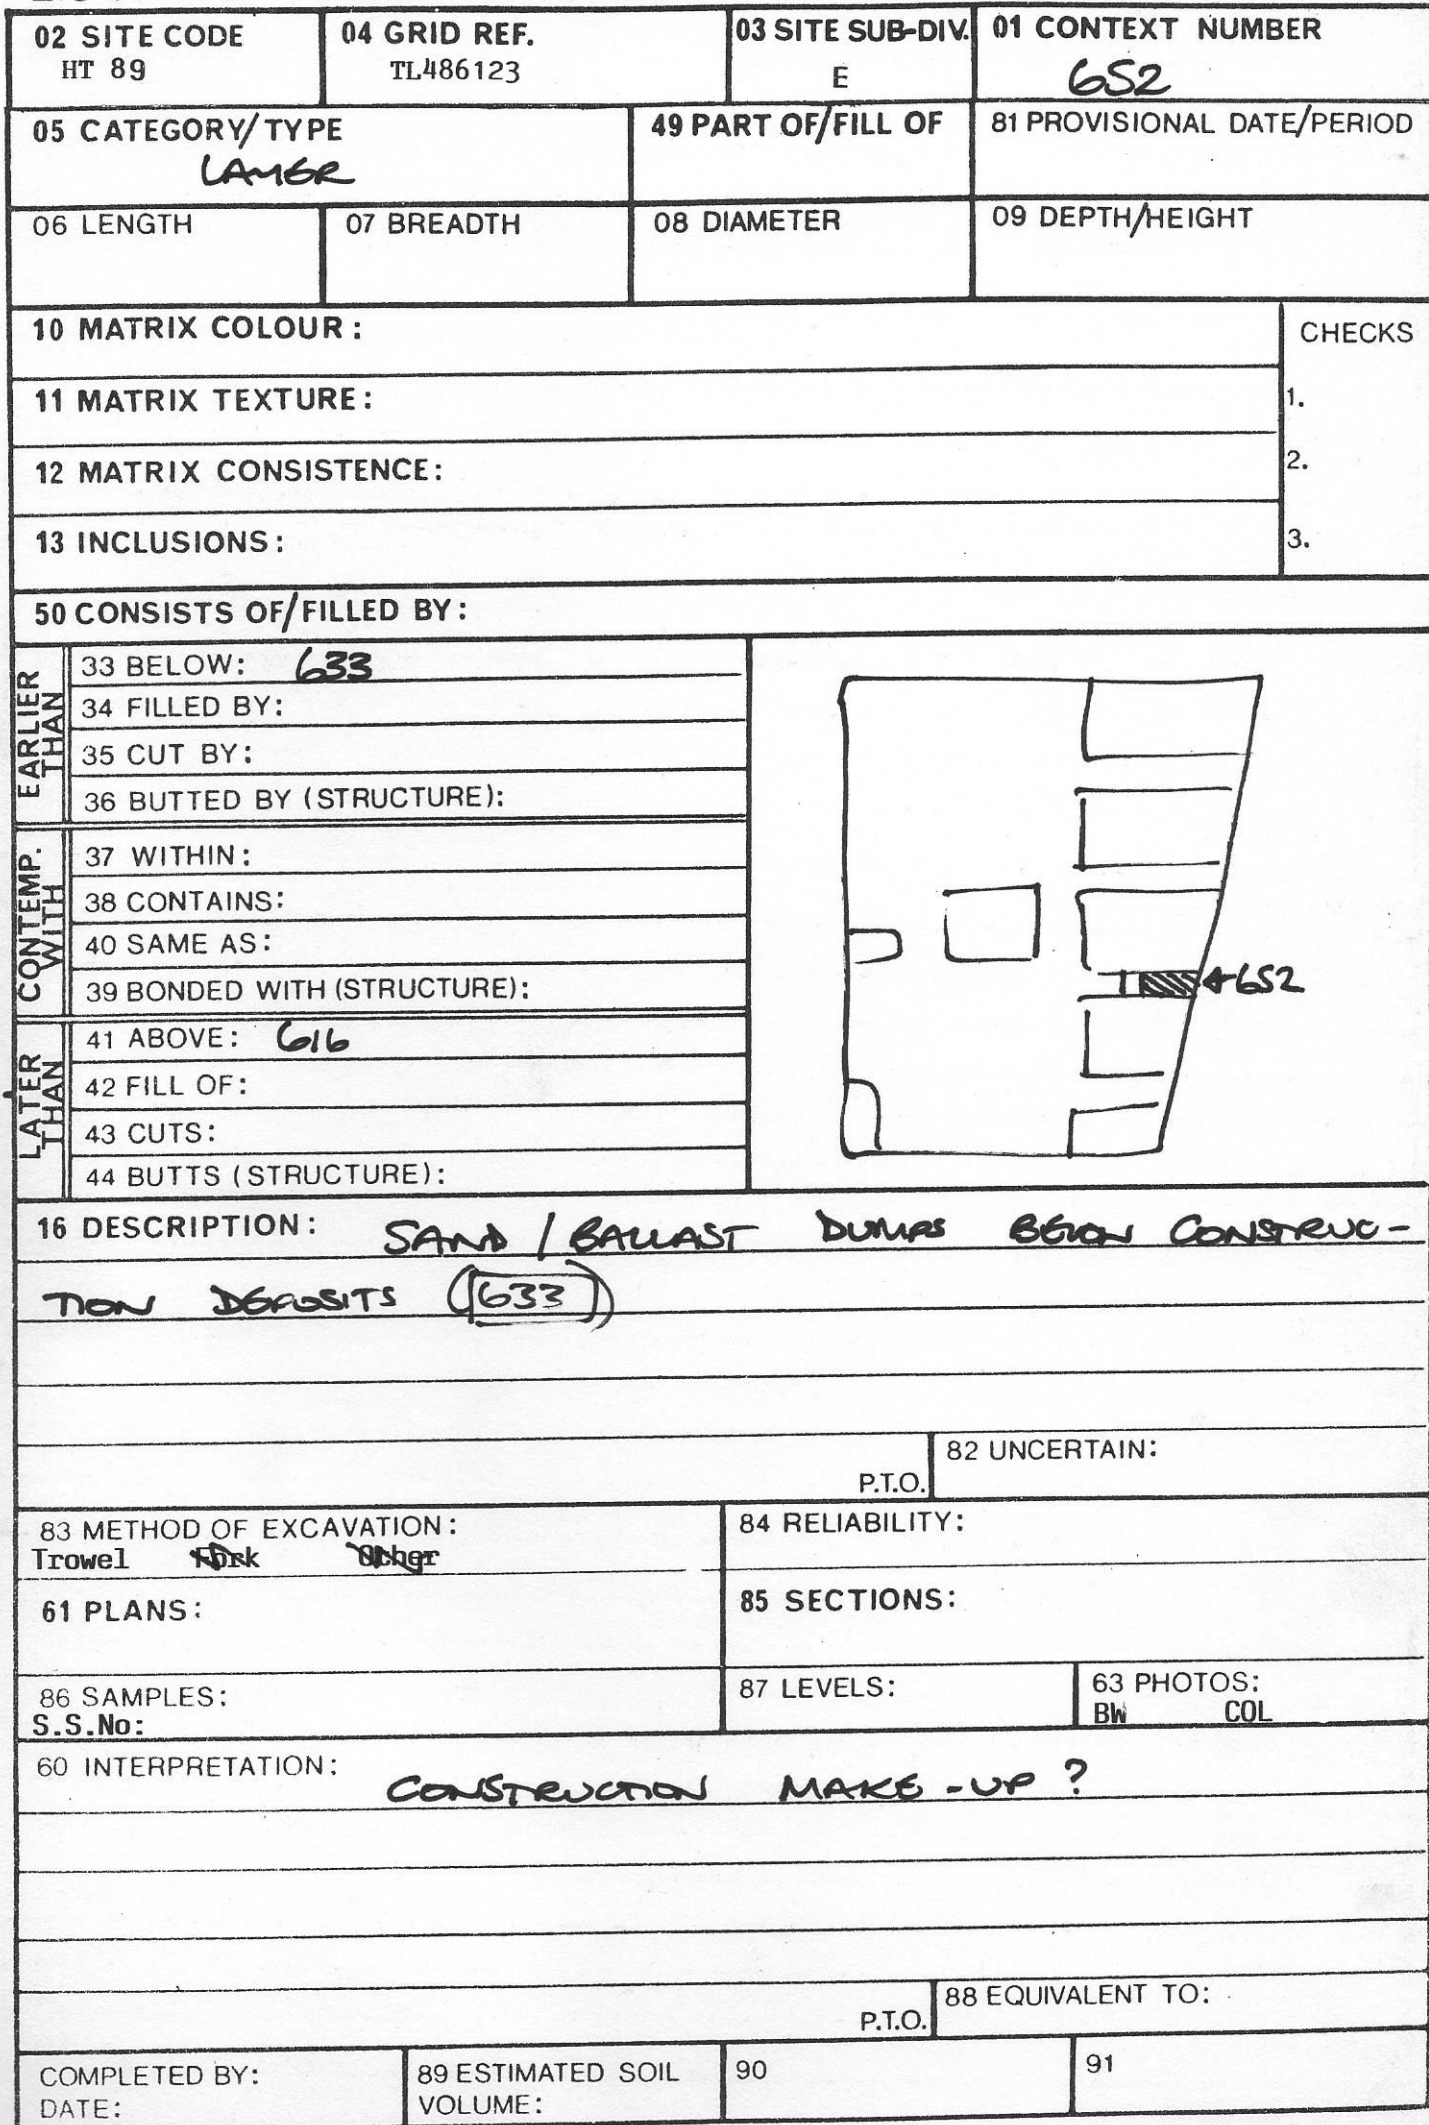 02 SITE CODE 04 GRID REF. 03 SITE SUB-DIV. 01 CONTEXT NUMBER
HT 89 TL486123 E 652
05 CATEGORY/TYPE 49 PART OF/FILL OF 81 PROVISIONAL DATE/PERIOD
LAYER
06 LENGTH 07 BREADTH 08 DIAMETER 09 DEPTH/HEIGHT
10 MATRIX COLOUR: CHECKS
11 MATRIX TEXTURE: 1.
12 MATRIX CONSISTENCE: 2.
13 INCLUSIONS: 3.
50 CONSISTS OF/FILLED BY:
EARLIER THAN
33 BELOW: 633
34 FILLED BY:
35 CUT BY:
36 BUTTED BY (STRUCTURE):
CONTEMP. WITH
37 WITHIN:
38 CONTAINS:
40 SAME AS:
39 BONDED WITH (STRUCTURE):
652
LATER THAN
41 ABOVE: 616
42 FILL OF:
43 CUTS:
44 BUTTS (STRUCTURE):
16 DESCRIPTION: SAND / BALLAST DUMPS BELOW CONSTRUC-
TION DEPOSITS (633)
P.T.O. 82 UNCERTAIN:
83 METHOD OF EXCAVATION: 84 RELIABILITY:
Trowel Fork Other
61 PLANS: 85 SECTIONS:
86 SAMPLES: 87 LEVELS: 63 PHOTOS:
S.S.No: BW COL
60 INTERPRETATION: CONSTRUCTION MAKE-UP?
P.T.O. 88 EQUIVALENT TO:
COMPLETED BY: 89 ESTIMATED SOIL 90 91
DATE: VOLUME: